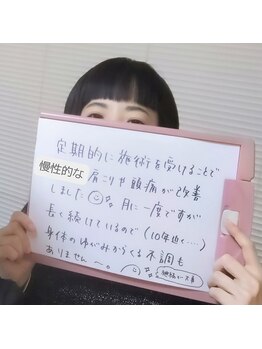 定期的に施術を受けることで
慢性的な肩こりや頭痛が改善
しました☺月に一度ですが
長く続けているので(10年近く…)
身体のゆがみからくる不調も
ありません〜。